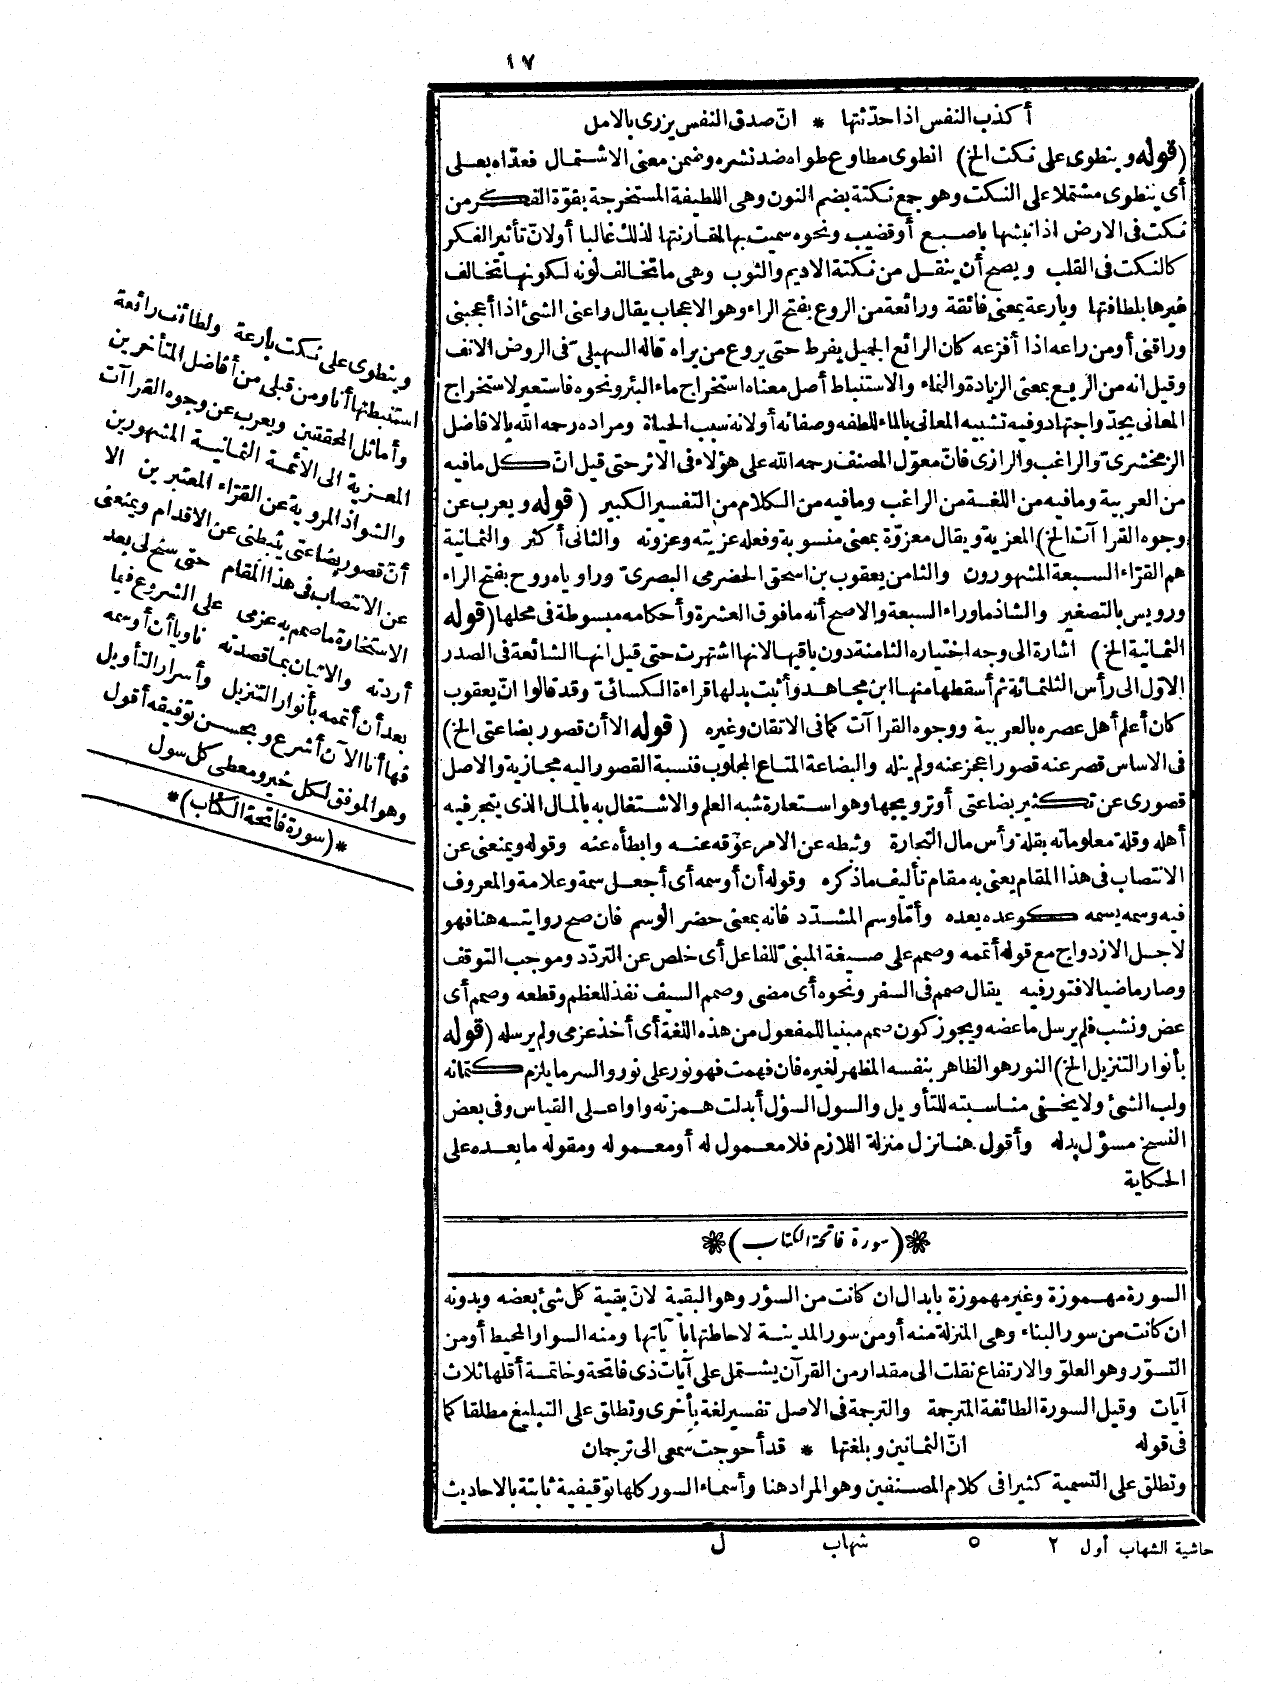 ١٧
أكذب النفس اذا حدّثتها * انّ صدق النفس يزرى بالامل
(قوله وينطوى على نكت الخ) انطوى مطاوع طواه ضد نشره وضمن معنى الاشتمال فعدّاه بعلى
أى ينطوى مشتملا على النكت وهو جمع نكتة بضم النون وهى اللطيفة المستخرجة بقوّة الفكر من
نكت فى الارض اذا نبشها باصبع أو قضيب ونحوه سميت بها لمقارنتها لذلك غالبا أولانّ تأثير الفكر
كالنكت فى القلب ويصح أن ينقل من نكتة الاديم والثوب وهى ما تخالف لونه لكونها تخالف
غيرها بلطافتها وبارعة بمعنى فائقة ورائعة من الروع بفتح الراء وهو الاعجاب يقال راعنى الشئ اذا أعجبنى
وراقنى أو من راعه اذا أفزعه كان الرائع الجميل يفرط حتى يروع من يراه قاله السهيلىّ فى الروض الانف
وقيل انه من الريع بمعنى الزيادة والنماء والاستنباط أصل معناه استخراج ماء البئر ونحوه فاستعير لاستخراج
المعانى بجدّ واجتهاد وفيه تشبيه المعانى بالماء للطفه وصفائه أولانه سبب الحياة ومراده رحمه الله بالافاضل
الزمخشرىّ والراغب والرازى فانّ معوّل المصنف رحمه الله على هؤلاء فى الاثر حتى قيل انّ كل ما فيه
من العربية وما فيه من اللغة من الراغب وما فيه من الكلام من التفسير الكبير (قوله ويعرب عن
وجوه القرا آت الخ) المعزية ويقال معزوّة بمعنى منسوبة وفعله عزيته وعزوته والثانى أكثر والثمانية
هم القرّاء السبعة المشهورون والثامن يعقوب بن اسحق الحضرمى البصرىّ وراوياه روح بفتح الراء
ورويس بالتصغير والشاذ ما وراء السبعة والاصح أنه ما فوق العشرة وأحكامه مبسوطة فى محلها (قوله
الثمانية الخ) اشارة الى وجه اختياره الثامنة دون باقيها لانها اشتهرت حتى قيل انها الشائعة فى الصدر
الاوّل الى رأس الثلثمائة ثم أسقطها منها ابن مجاهد وأثبت بدلها قراءة الكسائىّ وقد قالوا انّ يعقوب
كان أعلم أهل عصره بالعربية ووجوه القرا آت كما فى الاتقان وغيره (قوله الا أن قصور بضاعتى الخ)
فى الاساس قصر عنه قصورا عجز عنه ولم ينله والبضاعة المتاع المجلوب فنسبة القصور اليه مجازية والاصل
قصورى عن تكثير بضاعتى أو ترويجها وهو استعارة شبه العلم والاشتغال به بالمال الذى يتجر فيه
أهله وقلة معلوماته بقلة رأس مال التجارة وثبطه عن الامر عوّقه عنه وابطأه عنه وقوله ويمنعنى عن
الانتصاب فى هذا المقام يعنى به مقام تأليف ماذكره وقوله أن أوسمه أى أجعل سمة وعلامة والمعروف
فيه وسمه يسمه كوعده يعده وأمّا وسم المشدّد فانه بمعنى حضر الموسم فان صح روايته هنا فهو
لاجل الازدواج مع قوله أتممه وصمم على صيغة المبنىّ للفاعل أى خلص عن التردّد وموجب التوقف
وصار ماضيا لافتور فيه يقال صمم فى السفر ونحوه أى مضى وصمم السيف نفذ للعظم وقطعه وصمم أى
عض ونشب فلم يرسل ما عضه ويجوز كون صمم مبنيا للمفعول من هذه اللغة أى أخذ عزمى ولم يرسله (قوله
بأنوار التنزيل الخ) النور هو الظاهر بنفسه المظهر لغيره فان فهمت فهو نور على نور والسر ما يلزم كتمانه
ولب الشئ ولا يخفى مناسبته للتأويل والسول السؤل أبدلت همزته واوا على القياس وفى بعض
النسخ مسؤل بدله وأقول هنا نزل منزلة اللازم فلا معمول له أو معموله ومقوله ما بعده على
الحكاية
(سورة فاتحة الكتاب)
السورة مهموزة وغير مهموزة بابدال ان كانت من السؤر وهو البقية لانّ بقية كل شئ بعضه وبدونه
ان كانت من سور البناء وهى المنزلة منه أو من سور المدينة لاحاطتها بآياتها ومنه السوار المحيط أو من
التسوّر وهو العلوّ والارتفاع نقلت الى مقدار من القرآن يشتمل على آيات ذى فاتحة وخاتمة أقلها ثلاث
آيات وقيل السورة الطائفة المترجمة والترجمة فى الاصل تفسير لغة بأخرى وتطلق على التبليغ مطلقا كما
فى قوله انّ الثمانين وبلغتها * قد أحوجت سمعى الى ترجمان
وتطلق على التسمية كثيرا فى كلام المصنفين وهو المراد هنا وأسماء السور كلها توقيفية ثابتة بالاحاديث
حاشية الشهاب أول ٢ ٥ شهاب ل
وينطوى على نكت بارعة ولطائف رائعة
استنبطتها أنا ومن قبلى من أفاضل المتأخرين
وأماثل المحققين ويعرب عن وجوه القرا آت
المعزية الى الأئمة الثمانية المشهورين
والشواذ المروية عن القرّاء المعتبرين الا
أنّ قصور بضاعتى يثبطنى عن الاقدام ويمنعنى
عن الانتصاب فى هذا المقام حتى سنح لى بعد
الاستخارة ما صمم به عزمى على الشروع فيما
أردته والاتيان بما قصدته ناويا أن أوسمه
بعد أن أتممه بأنوار التنزيل وأسرار التأويل
فها أنا الآن أشرع وبحسن توفيقه أقول
وهو الموفق لكل خير ومعطى كل سول
*(سورة فاتحة الكتاب)*